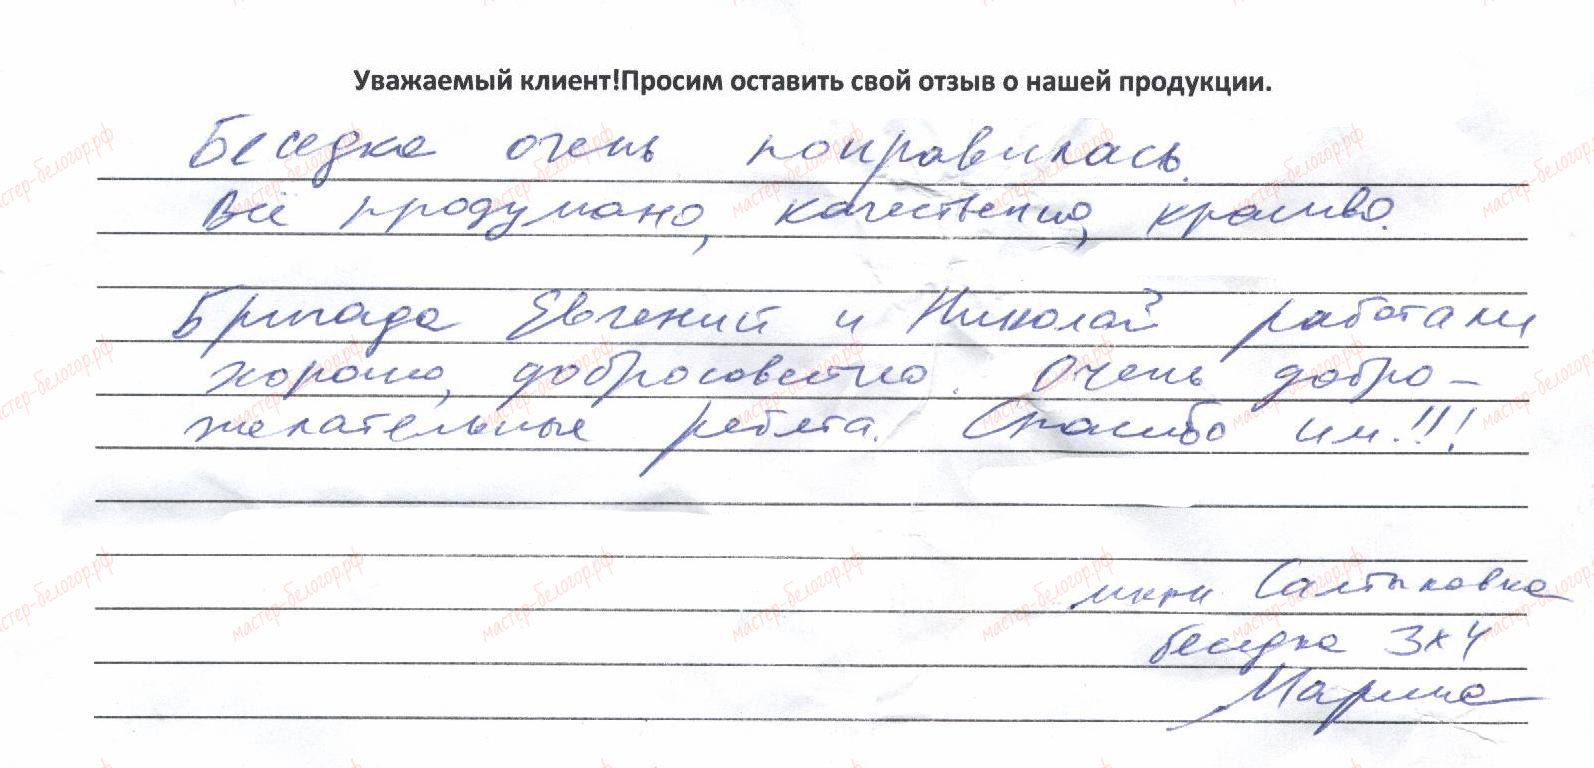 Уважаемый клиент!Просим оставить свой отзыв о нашей продукции.
Беседка очень понравилась.
Всё продумано, качественно, красиво.
Бригада Евгений и Николай работали
хорошо, добросовестно. Очень добро-
желательные ребята. Спасибо им!!!
мкрн. Салтыковка
беседка 3х4
Марина
мастер-белогор.рф